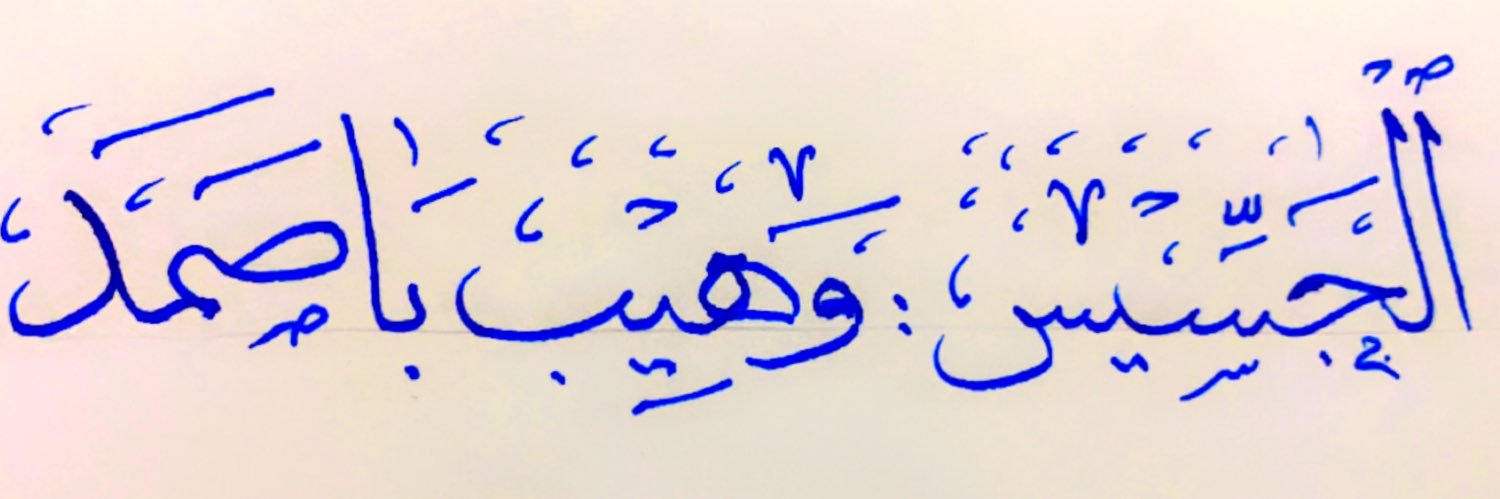 الْجَسِّيس: وَهِيب بَاصَمَد